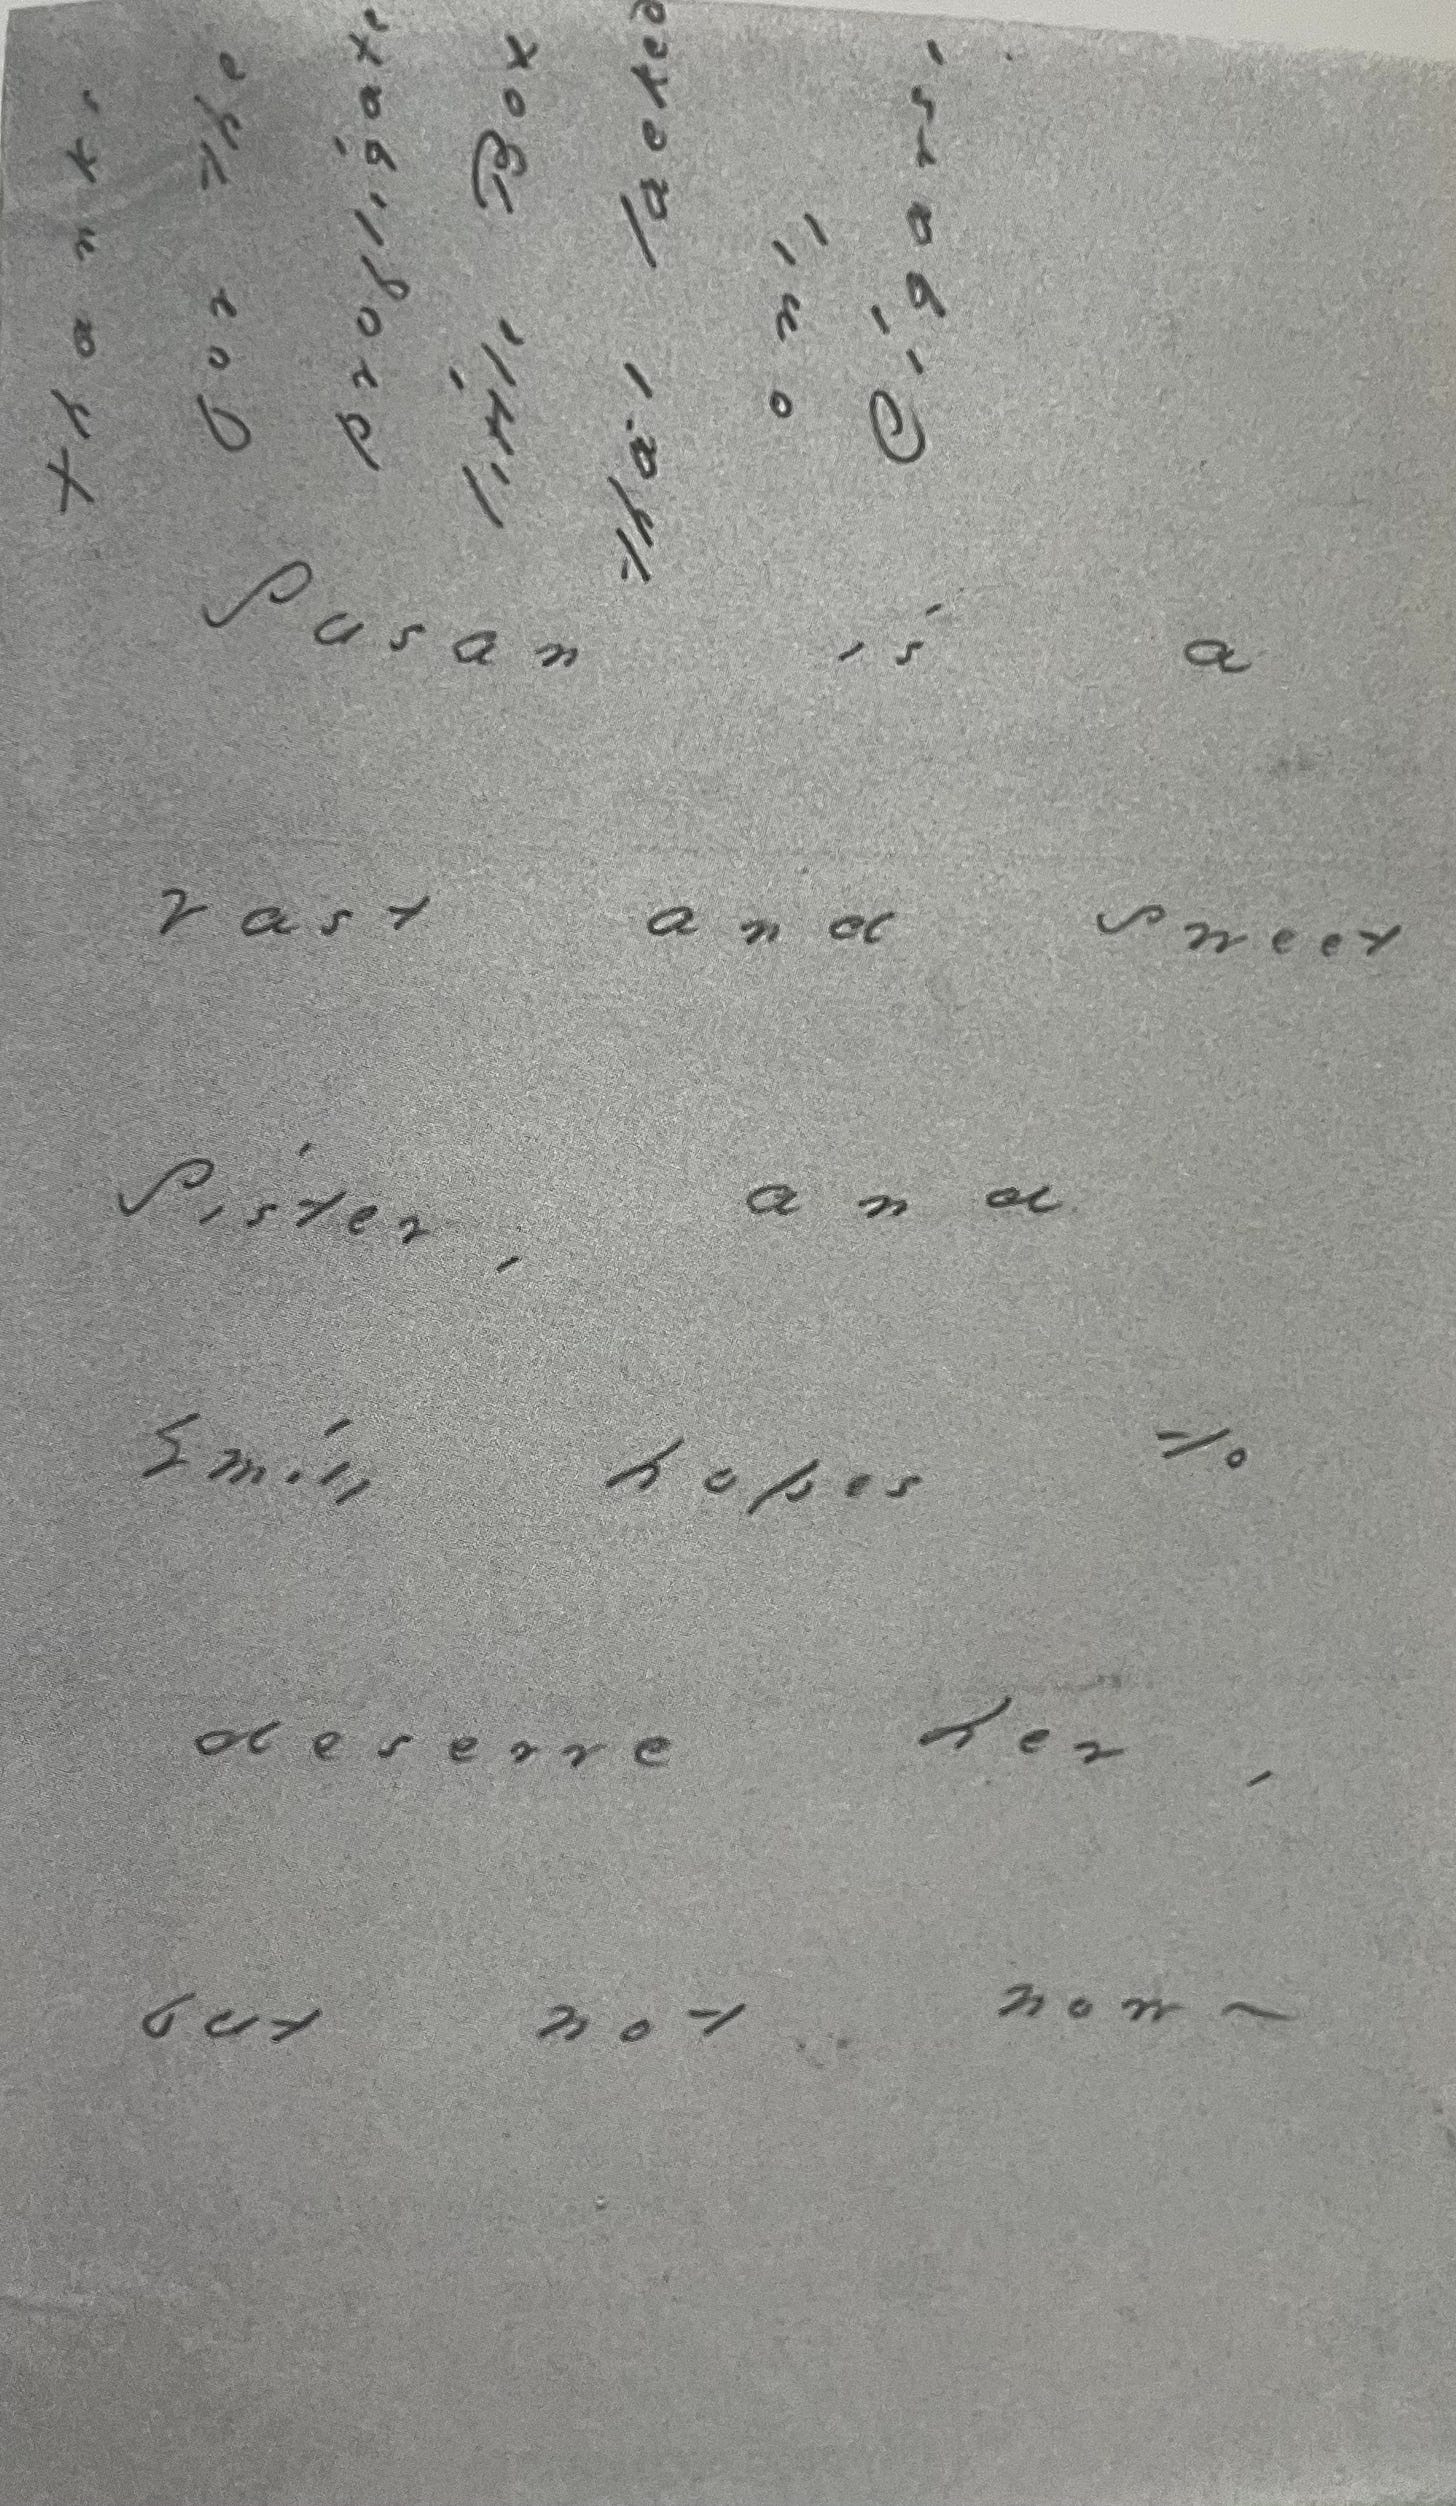 Susan is a
vast and sweet
Sister, and
Emily hopes to
deserve her,
but not now -
Thanks
for the
profligate
little Box
that lacked
only
Cigars,